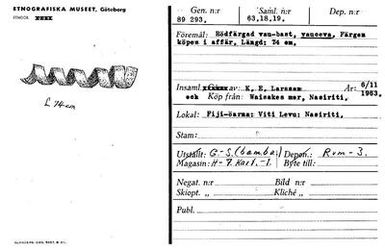 ETNOGRAFISKA MUSEET, Göteborg
L 74 cm
Gen. n:r Saml. n:r Dep. n:r
89 293. 63,18,19.
Föremål: Rödfärgad vau-bast, vauceva. Färgen
köpes i affär, Längd: 74 cm,
Insaml. av: K. E. Larsson År: 6/11
och Köp från: Waisakes mor, Nasiriti, 1963.
Lokal: Fiji-öarna: Viti Levu: Nasiriti,
Stam:
Utställt: G-S. (bamba) Depon.: Rum-3.
Magasin: H-7. Kart.-1. Byte till:
Negat. n:r Bild n:r
Skiopt. „ Kliché „
Publ.